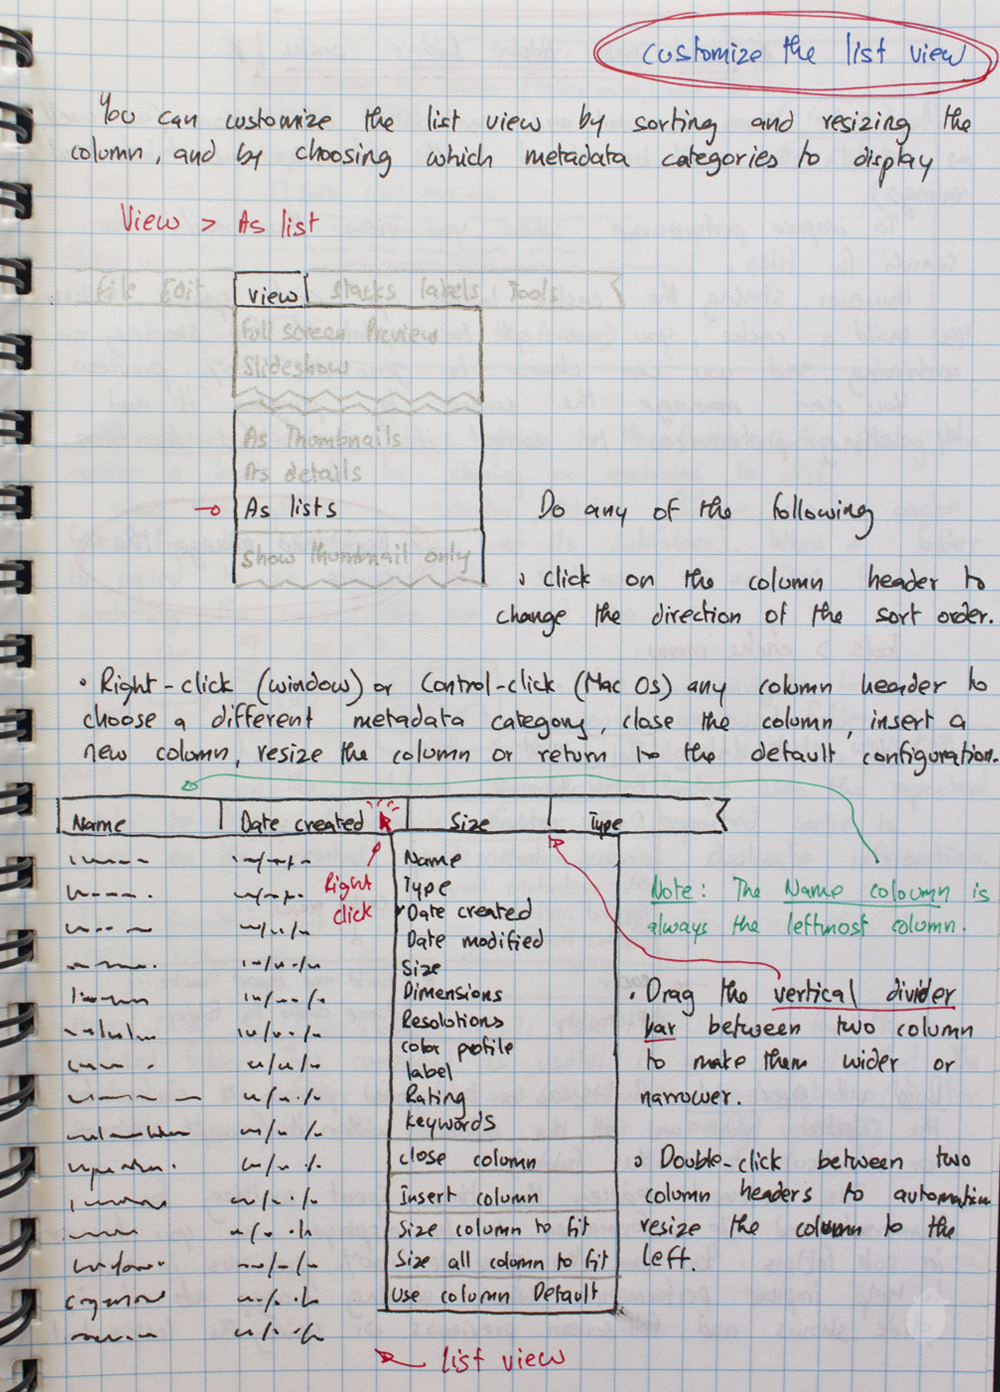 customize the list view
You can customize the list view by sorting and resizing the
column, and by choosing which metadata categories to display
View > As list
File Edit View Stacks labels Tools
Full screen Preview
Slideshow
As Thumbnails
As details
As lists
Show thumbnail only
Do any of the following
click on the column header to
change the direction of the sort order.
• Right-click (window) or Control-click (Mac Os) any column header to
choose a different metadata category, close the column, insert a
new column, resize the column or return to the default configuration.
Name Date created Size Type
Right
click
Name
Type
✓Date created
Date modified
Size
Dimensions
Resolutions
color profile
label
Rating
keywords
close column
Insert column
Size column to fit
Size all column to fit
use column Default
Note: The Name coloumn is
always the leftmost column.
• Drag the vertical divider
bar between two column
to make them wider or
narrower.
Double-click between two
column headers to
resize the column to the
left.
list view